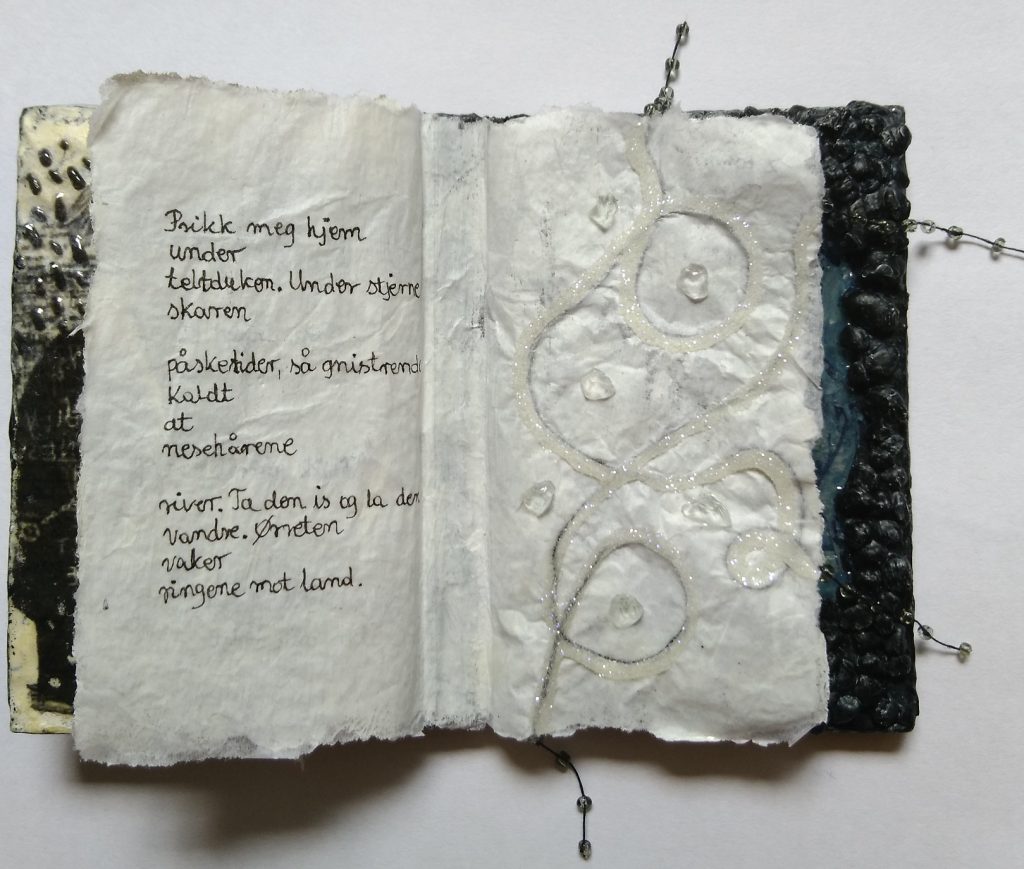 Prikk meg hjem
under
teltduken. Under stjerne
skaren
påsketider, så gnistrende
kaldt
at
nesehårene
river. Ta den is og la den
vandre. Ørreten
vaker
ringene mot land.